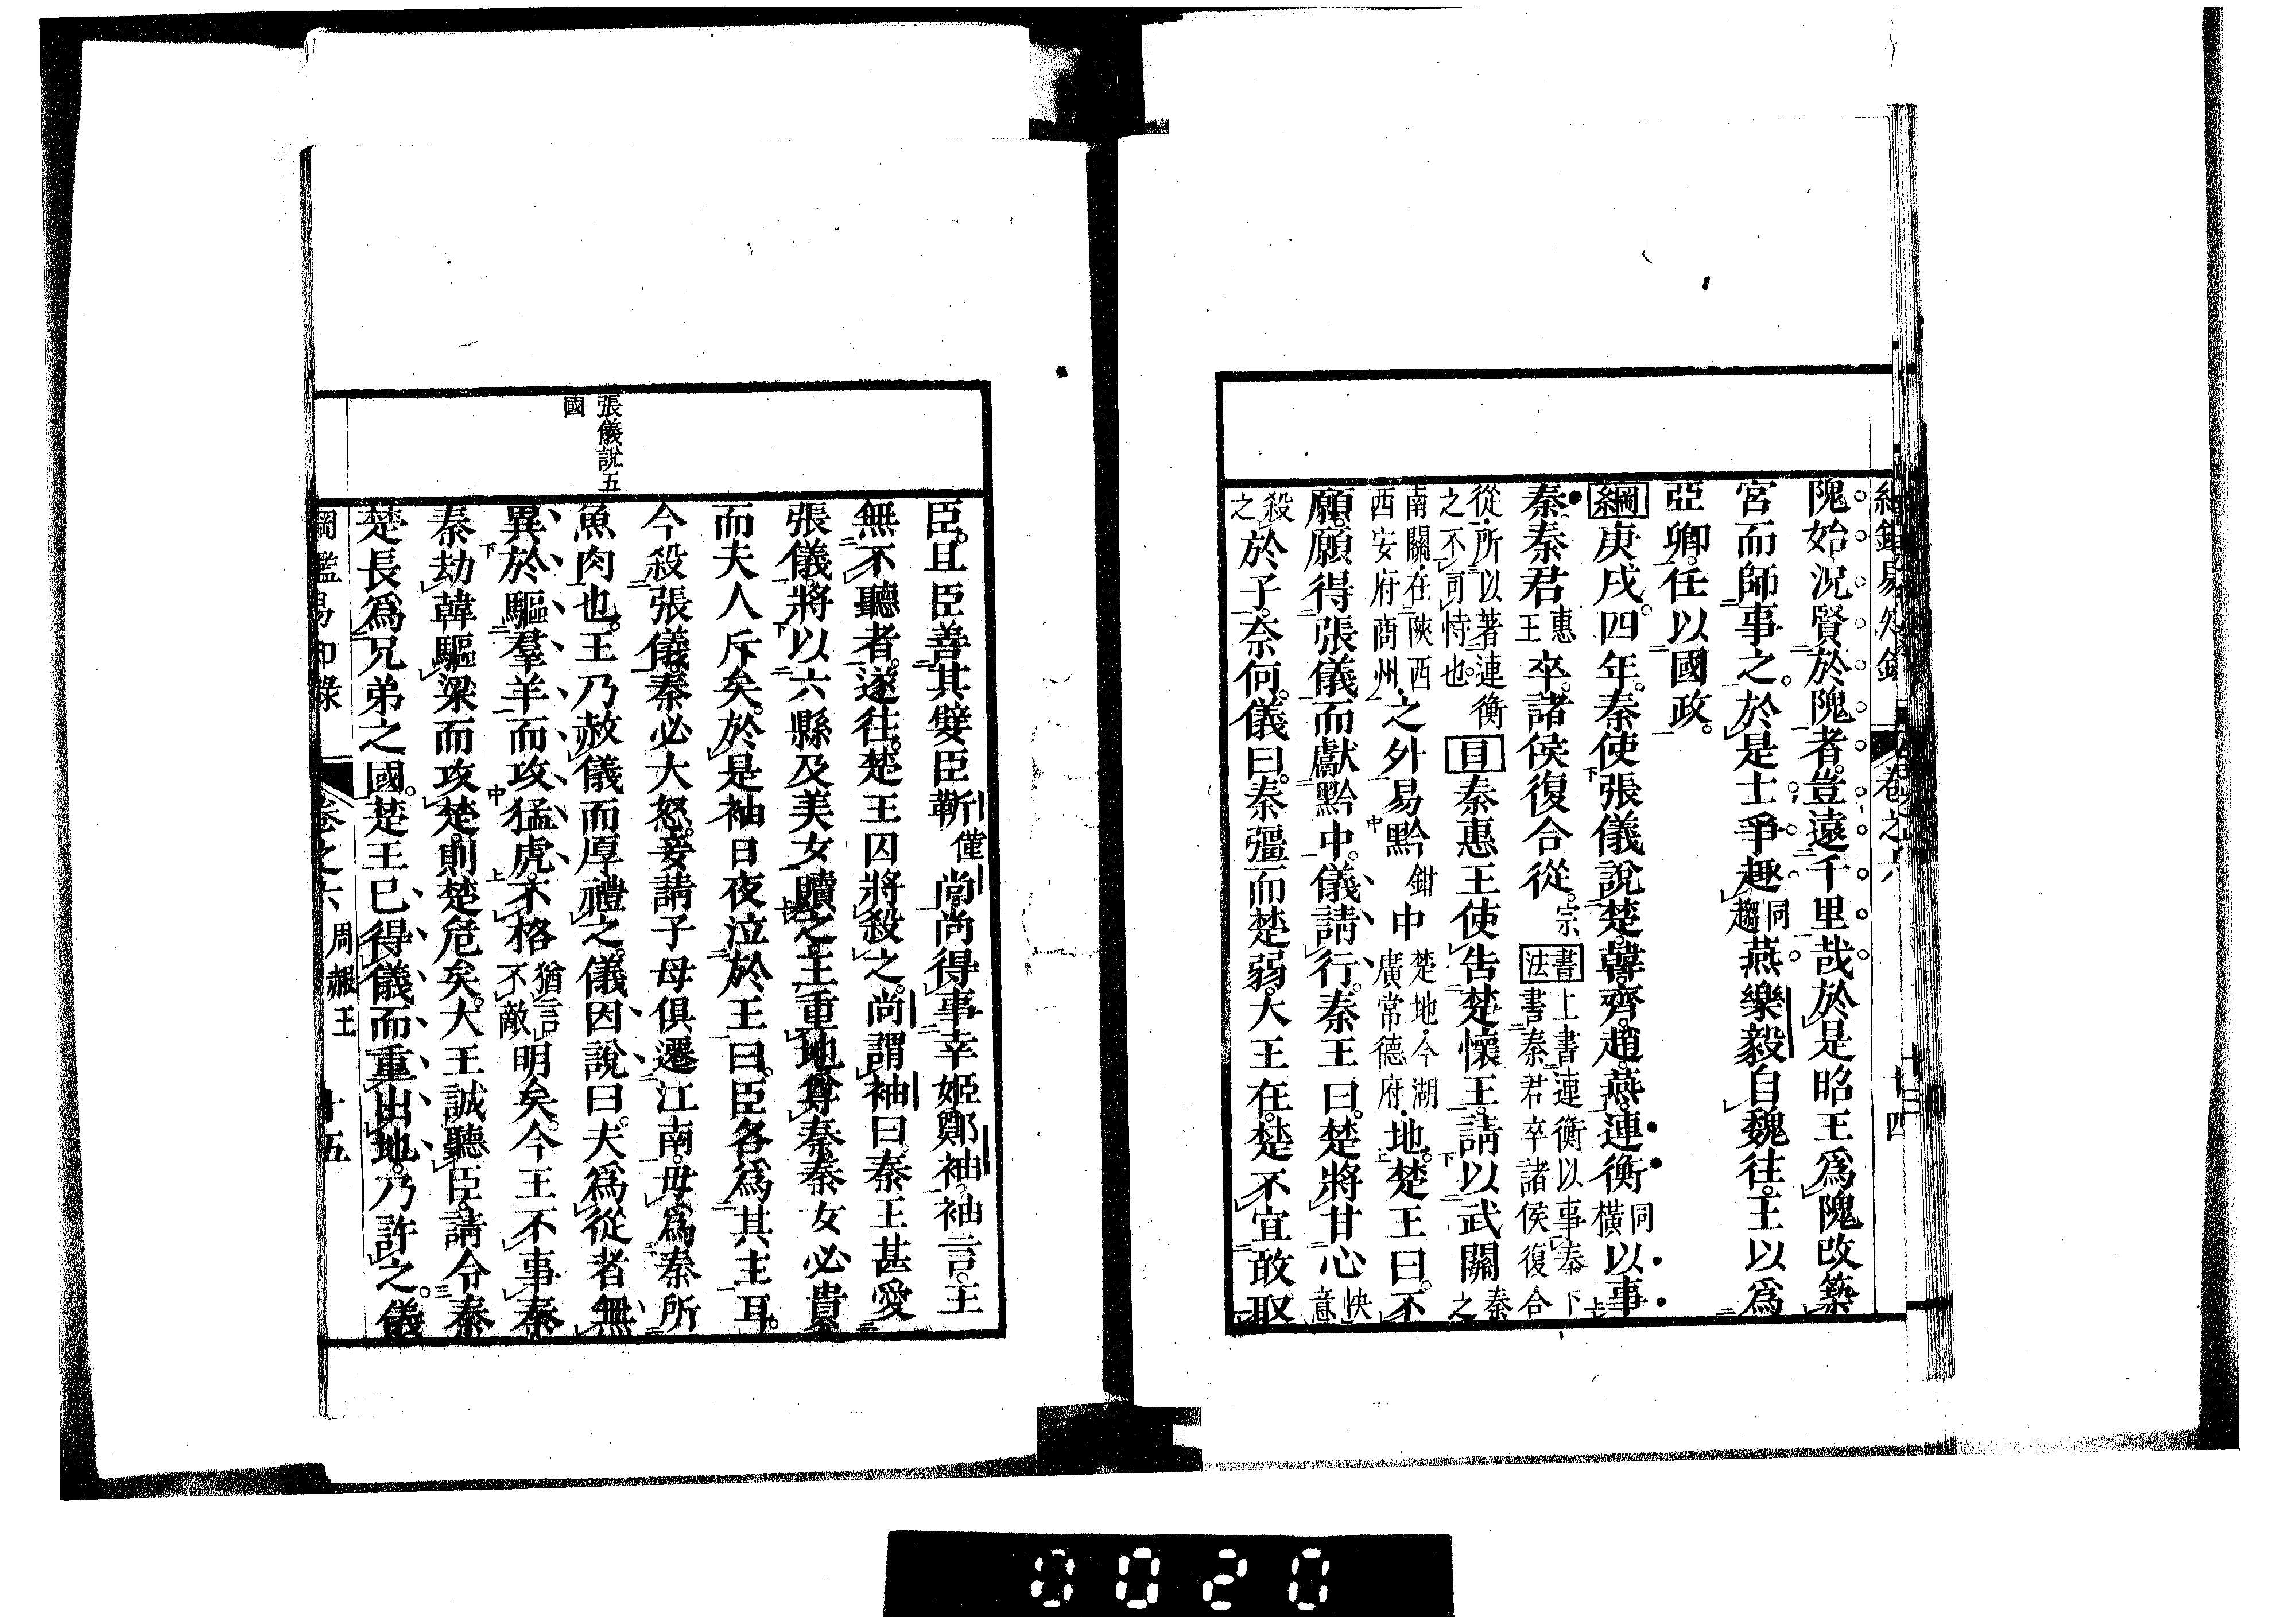 隗始況賢於隗者豈遠千里哉於是昭王爲隗改築
宮而師事之於是士爭趣同趨燕樂毅自魏往王以爲
亞卿任以國政
綱庚戌四年秦使張儀說楚韓齊趙燕連衡同橫以事
秦秦君惠王卒諸侯復合從宗書法上書連衡以事秦下書秦君卒諸侯復合
從所以著連衡之不可恃也目秦惠王使告楚懷王請以武關秦之
南關在陝西西安府商州之外易黔鉗中楚地今湖廣常德府地楚王曰不
願願得張儀而獻黔中儀請行秦王曰楚將甘心快意
殺之於子奈何儀曰秦彊而楚弱大王在楚不宜敢取
臣且臣善其嬖臣靳僅尚尚得事幸姬鄭袖袖言王
無不聽者遂往楚王囚將殺之尚謂袖曰秦王甚愛
張儀將以六縣及美女贖之王重地尊秦秦女必貴
而夫人斥矣於是袖日夜泣於王曰臣各爲其主耳
今殺張儀秦必大怒妾請子母俱遷江南毋爲秦所
張儀說五
國
魚肉也王乃赦儀而厚禮之儀因說曰夫爲從者無
異於驅羣羊而攻猛虎不格猶言不敵明矣今王不事秦
秦劫韓驅梁而攻楚則楚危矣大王誠聽臣請令秦
楚長爲兄弟之國楚王已得儀而重出地乃許之儀
綱鑑易知錄 卷之六 周赧王 廿五
0020